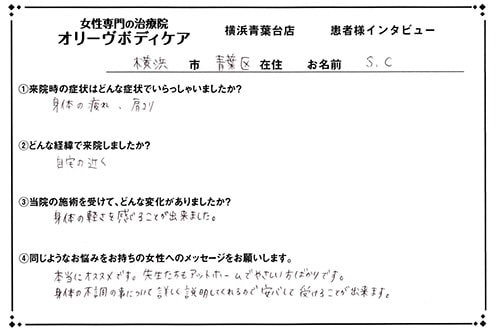 女性専門の治療院
オリーヴボディケア 横浜青葉台店 患者様インタビュー
横浜 市 青葉区 在住 お名前 S.C
①来院時の症状はどんな症状でいらっしゃいましたか?
身体の疲れ、肩コリ
②どんな経緯で来院しましたか?
自宅の近く
③当院の施術を受けて、どんな変化がありましたか?
身体の軽さを感じることが出来ました。
④同じようなお悩みをお持ちの女性へのメッセージをお願いします。
本当にオススメです。先生たちもアットホームでやさしい方ばかりです。
身体の不調の事について詳しく説明してくれるので安心して受けることが出来ます。